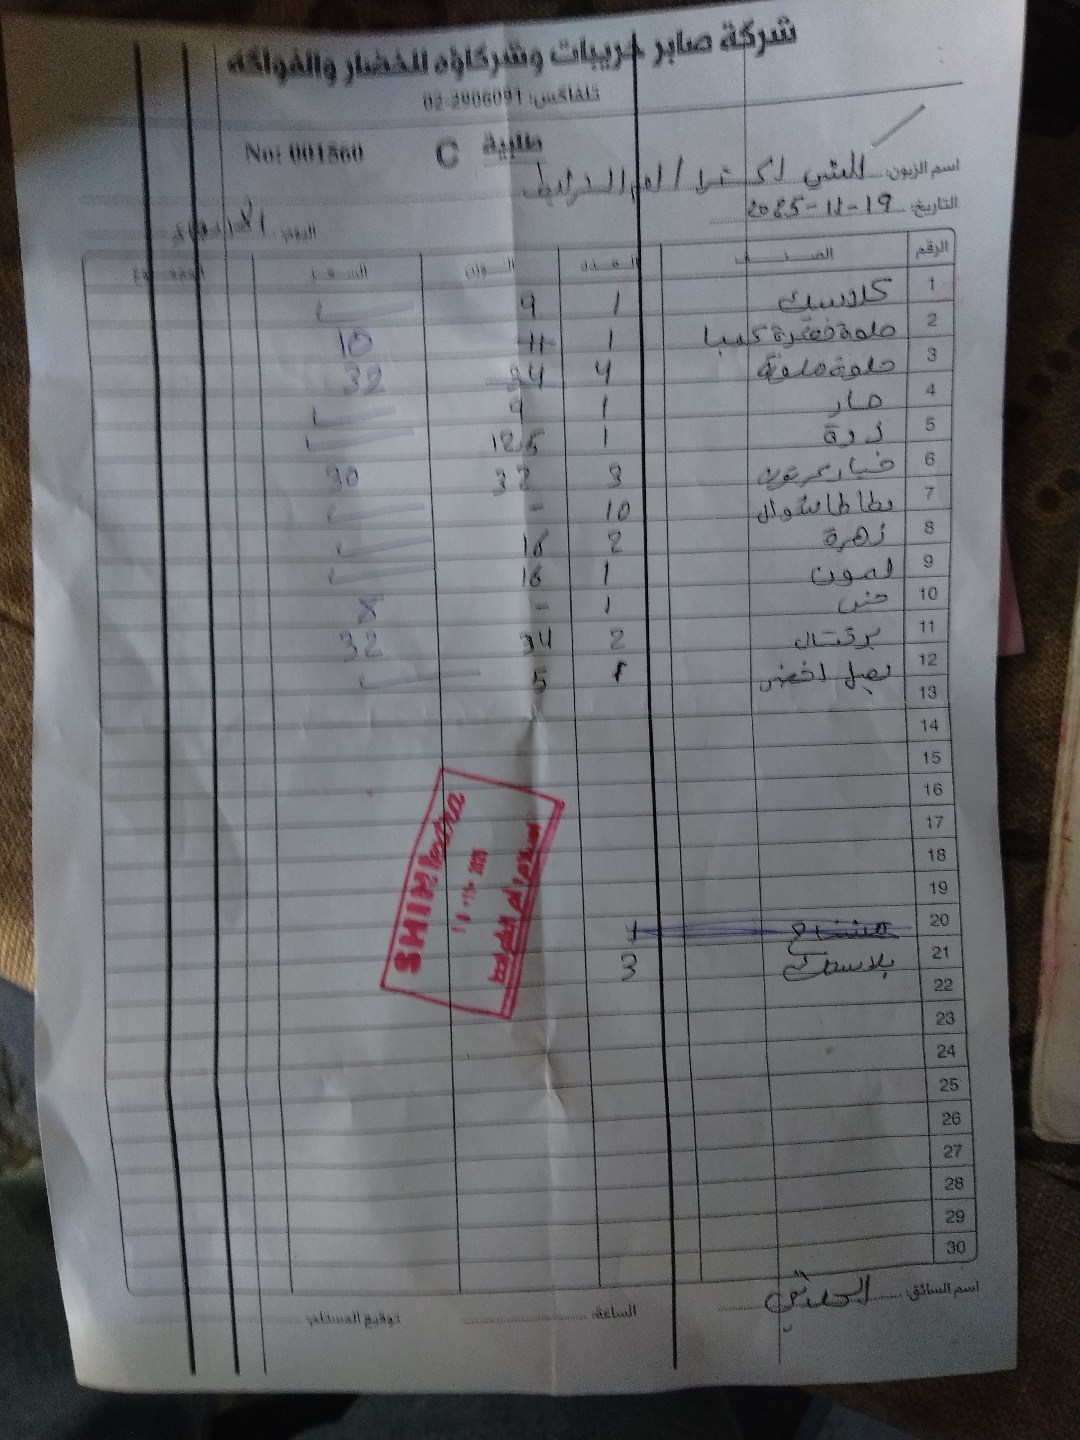 شركة صابر حريبات وشركاؤه للخضار والفواكه
تلفاكس: 02-2906091
طلبية C No: 001560
اسم الزبون: الشني اكسترا / ام الشرايط
التاريخ: 19-11-2025
اليوم: الأربعاء
الرقم الصنف العدد الوزن السعر المجموع
1 كلاسيك 1 9
2 حلوة خضرة كبيا 1 11 10
3 حلوة ملونة 4 34 32
4 حار 1 9
5 ذرة 1 12.5
6 خيار كرتون 3 32 30
7 بطاطا شوال 10 -
8 زهرة 2 16
9 ليمون 1 16
10 خس 1 - x
11 برتقال 2 34 32
12 بصل اخضر 1 5
13
14
15
16
17
18
19
20 1
21 بلاستيك 3
22
23
24
25
26
27
28
29
30
SHINI extra
اسم السائق:
الساعة:
توقيع المستلم: